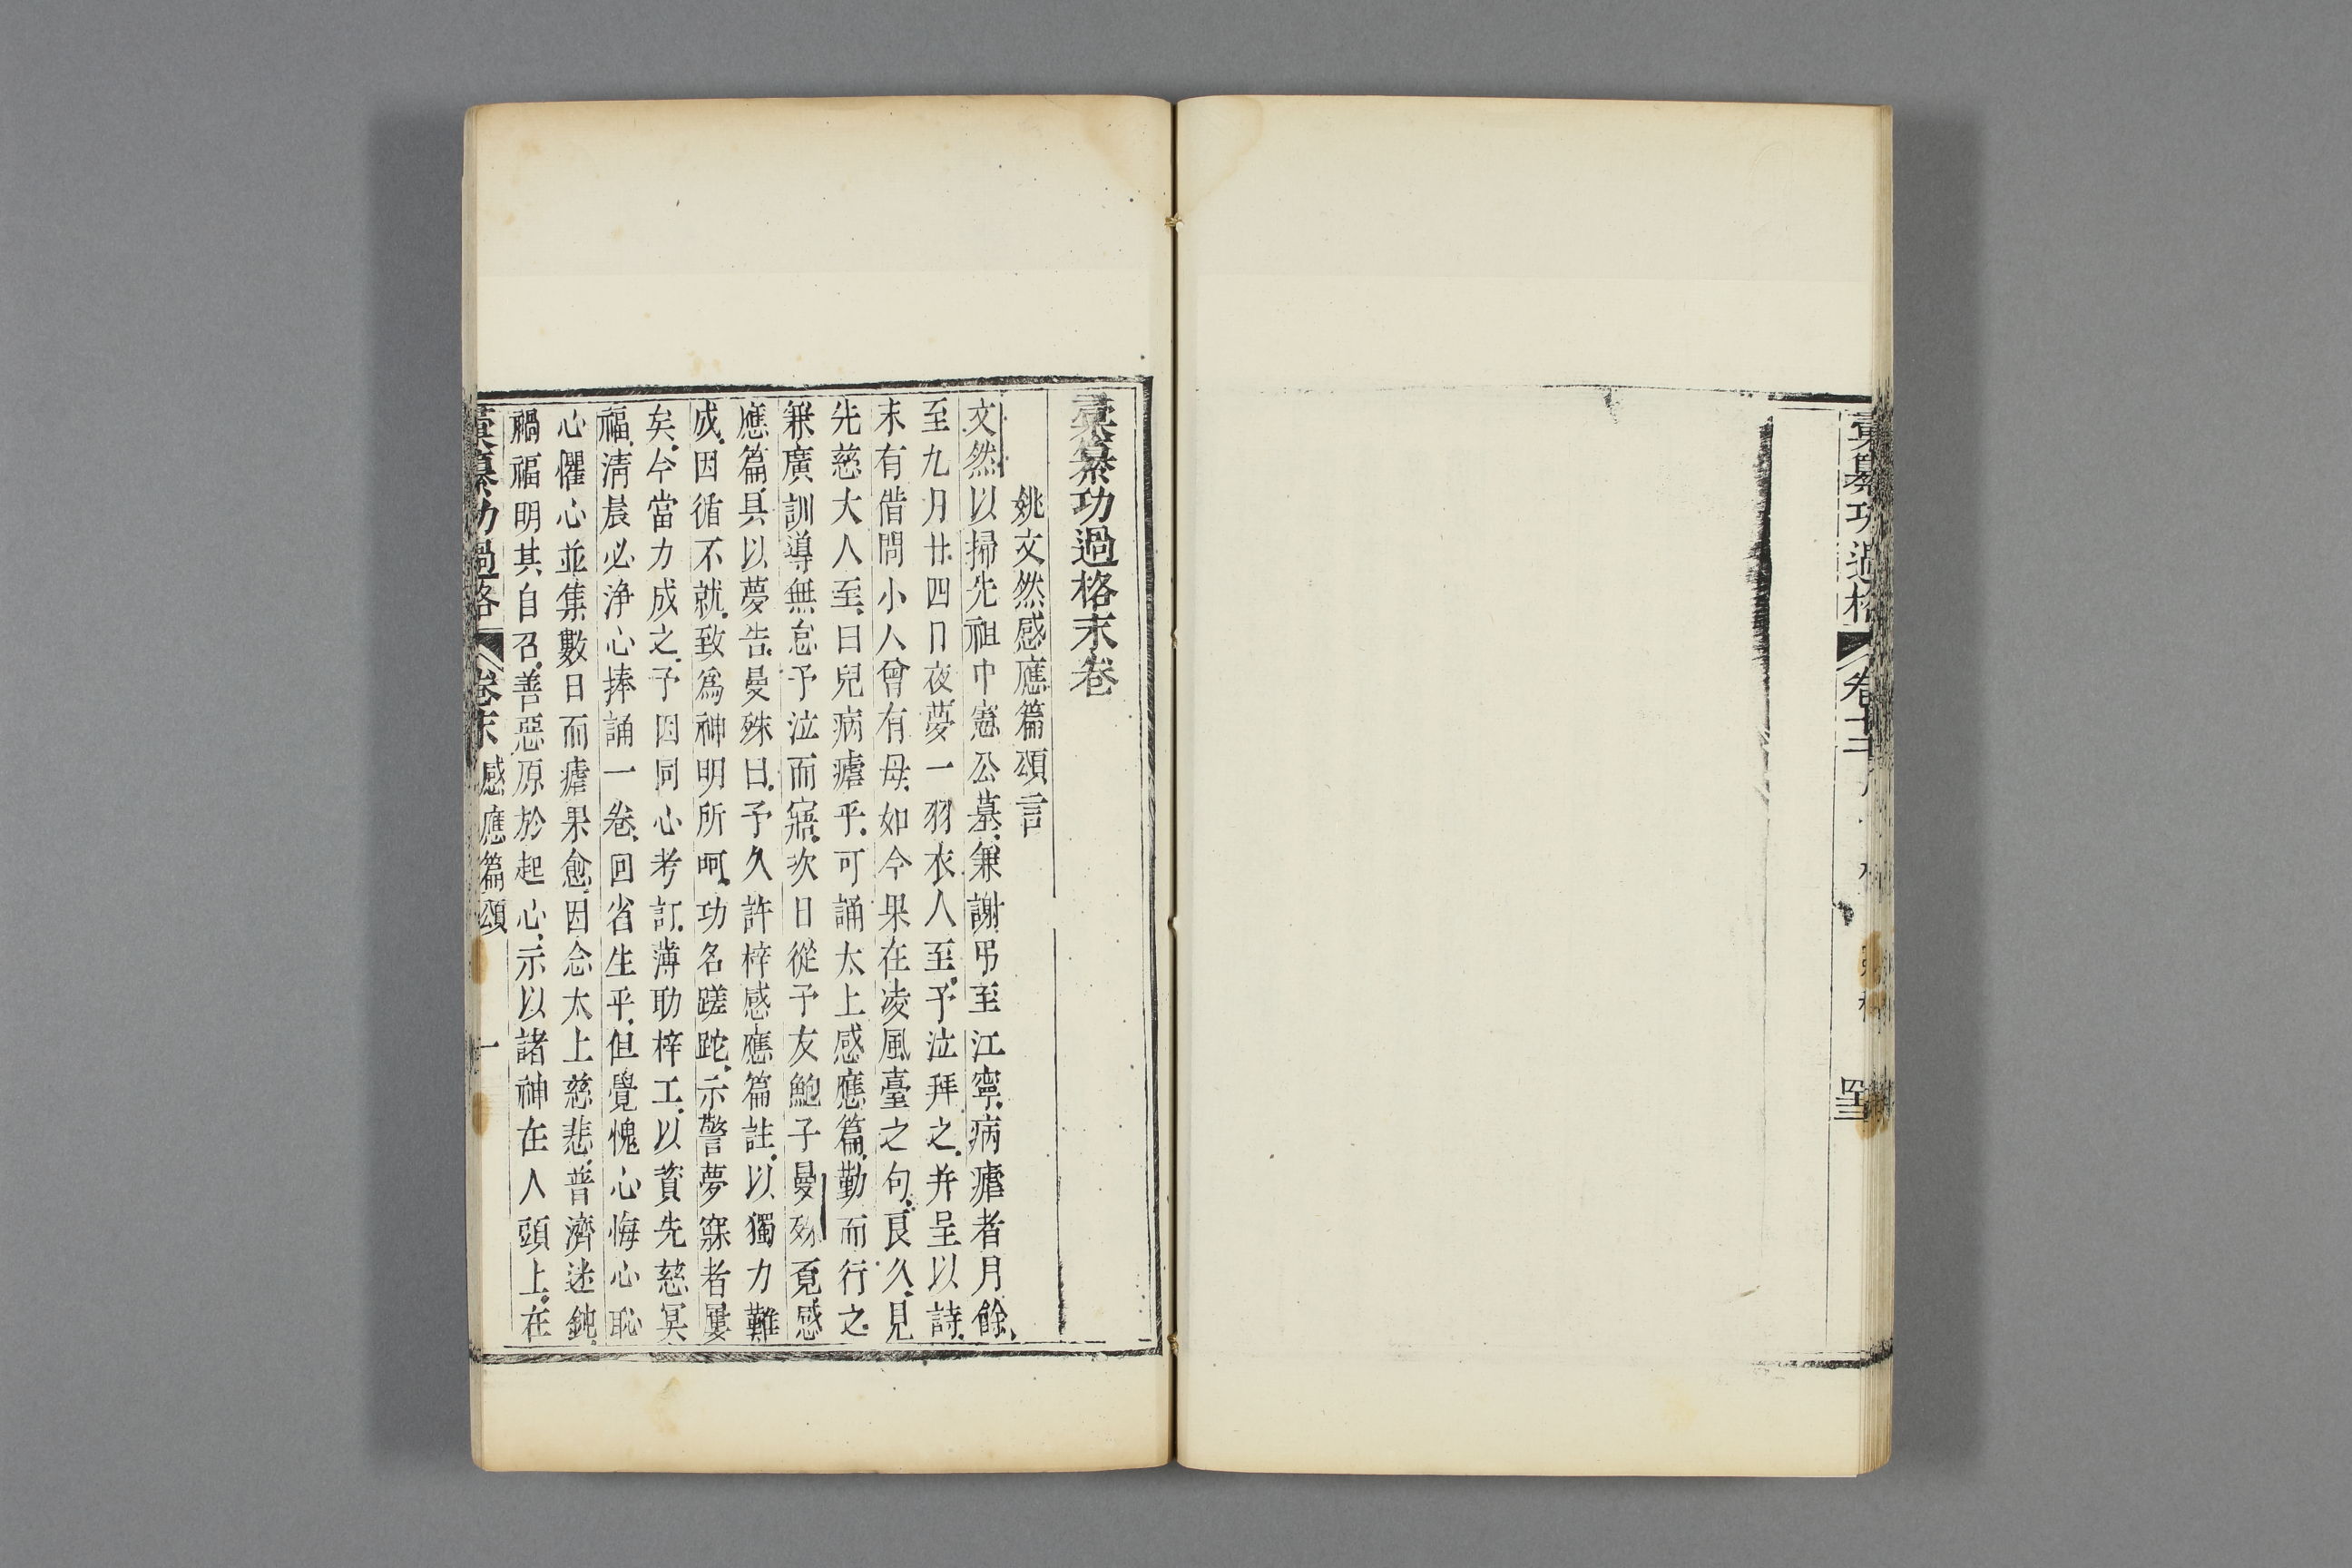 彙纂功過格
卷十二
彙纂功過格末卷
姚文然感應篇頌言
文然以掃先祖中憲公墓兼謝弔至江寧病瘧者月餘
至九月廿四日夜夢一羽衣人至予泣拜之并呈以詩
末有借問小人曾有母如今果在凌風臺之句良久見
先慈大人至曰兒病瘧乎可誦太上感應篇勤而行之
兼廣訓導無怠予泣而寤次日從予友鮑子曼殊覓感
應篇具以夢告曼殊曰予久許梓感應篇註以獨力難
成因循不就致為神明所呵功名蹉跎示警夢寐者屢
矣今當力成之予因同心考訂薄助梓工以資先慈冥
福清晨必淨心捧誦一卷回省生平但覺愧心悔心恥
心懼心並集數日而瘧果愈因念太上慈悲普濟迷鈍
禍福明其自召善惡原於起心示以諸神在人頭上在
彙纂功過格 卷末 感應篇頌 一